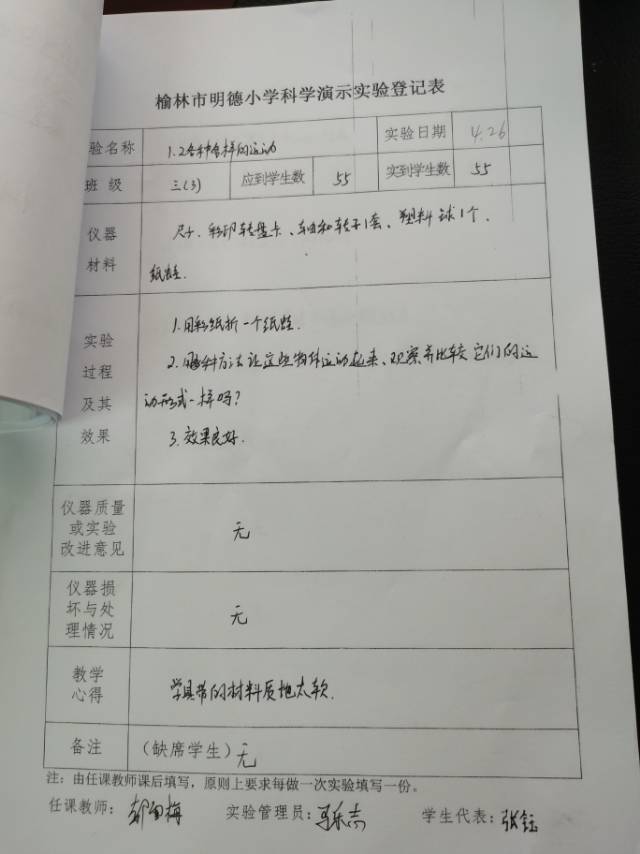 榆林市明德小学科学演示实验登记表
验名称 1.2各种各样的运动 实验日期 4.26
班 级 三(3) 应到学生数 55 实到学生数 55
仪器
材料
尺子、彩印转盘卡、轴和转子1套、塑料球1个、
纸蛙.
实验
过程
及其
效果
1.用彩纸折一个纸蛙.
2.用多种方法让这些物体运动起来、观察并比较它们的运
动形式一样吗?
3.效果良好.
仪器质量
或实验
改进意见
无
仪器损
坏与处
理情况
无
教学
心得
学具带的材料质地太软.
备注 (缺席学生)无
注:由任课教师课后填写,原则上要求每做一次实验填写一份。
任课教师: 实验管理员: 学生代表:张钰